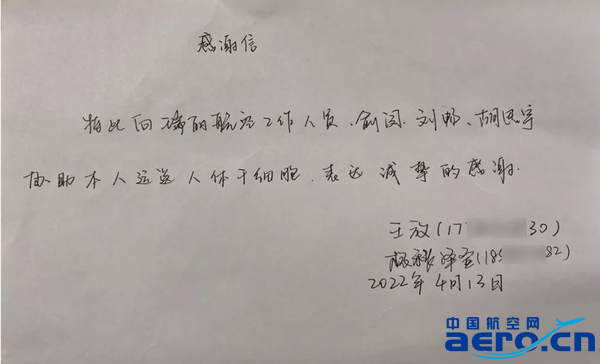 感谢信
特此向瑞丽航空工作人员、俞闵、刘畅、胡思宇
协助本人运送人体干细胞,表达诚挚的感谢.
王放(17 30)
(189 82)
2022年4月13日
中国航空网
aero.cn